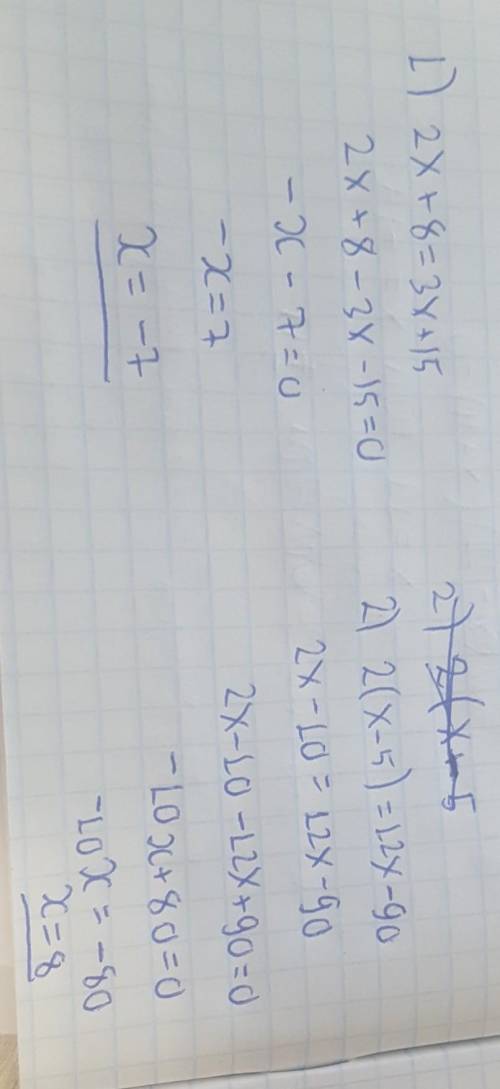 1) 2x + 8 = 3x + 15
2x + 8 - 3x - 15 = 0
- x - 7 = 0
- x = 7
x = - 7
2) 2(x - 5
2) 2(x - 5) = 12x - 90
2x - 10 = 12x - 90
2x - 10 - 12x + 90 = 0
- 10x + 80 = 0
- 10x = - 80
x = 8